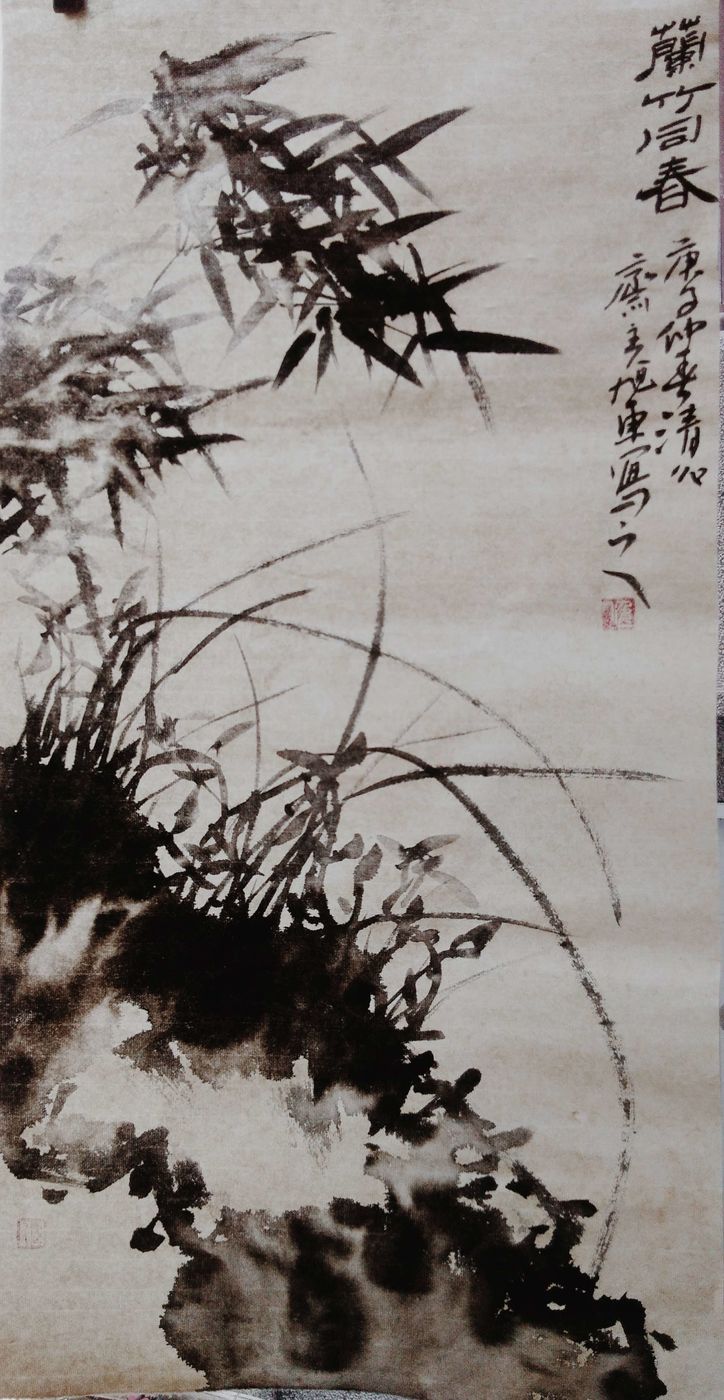 蘭竹同春
庚子仲春清心
齋主旭東寫之